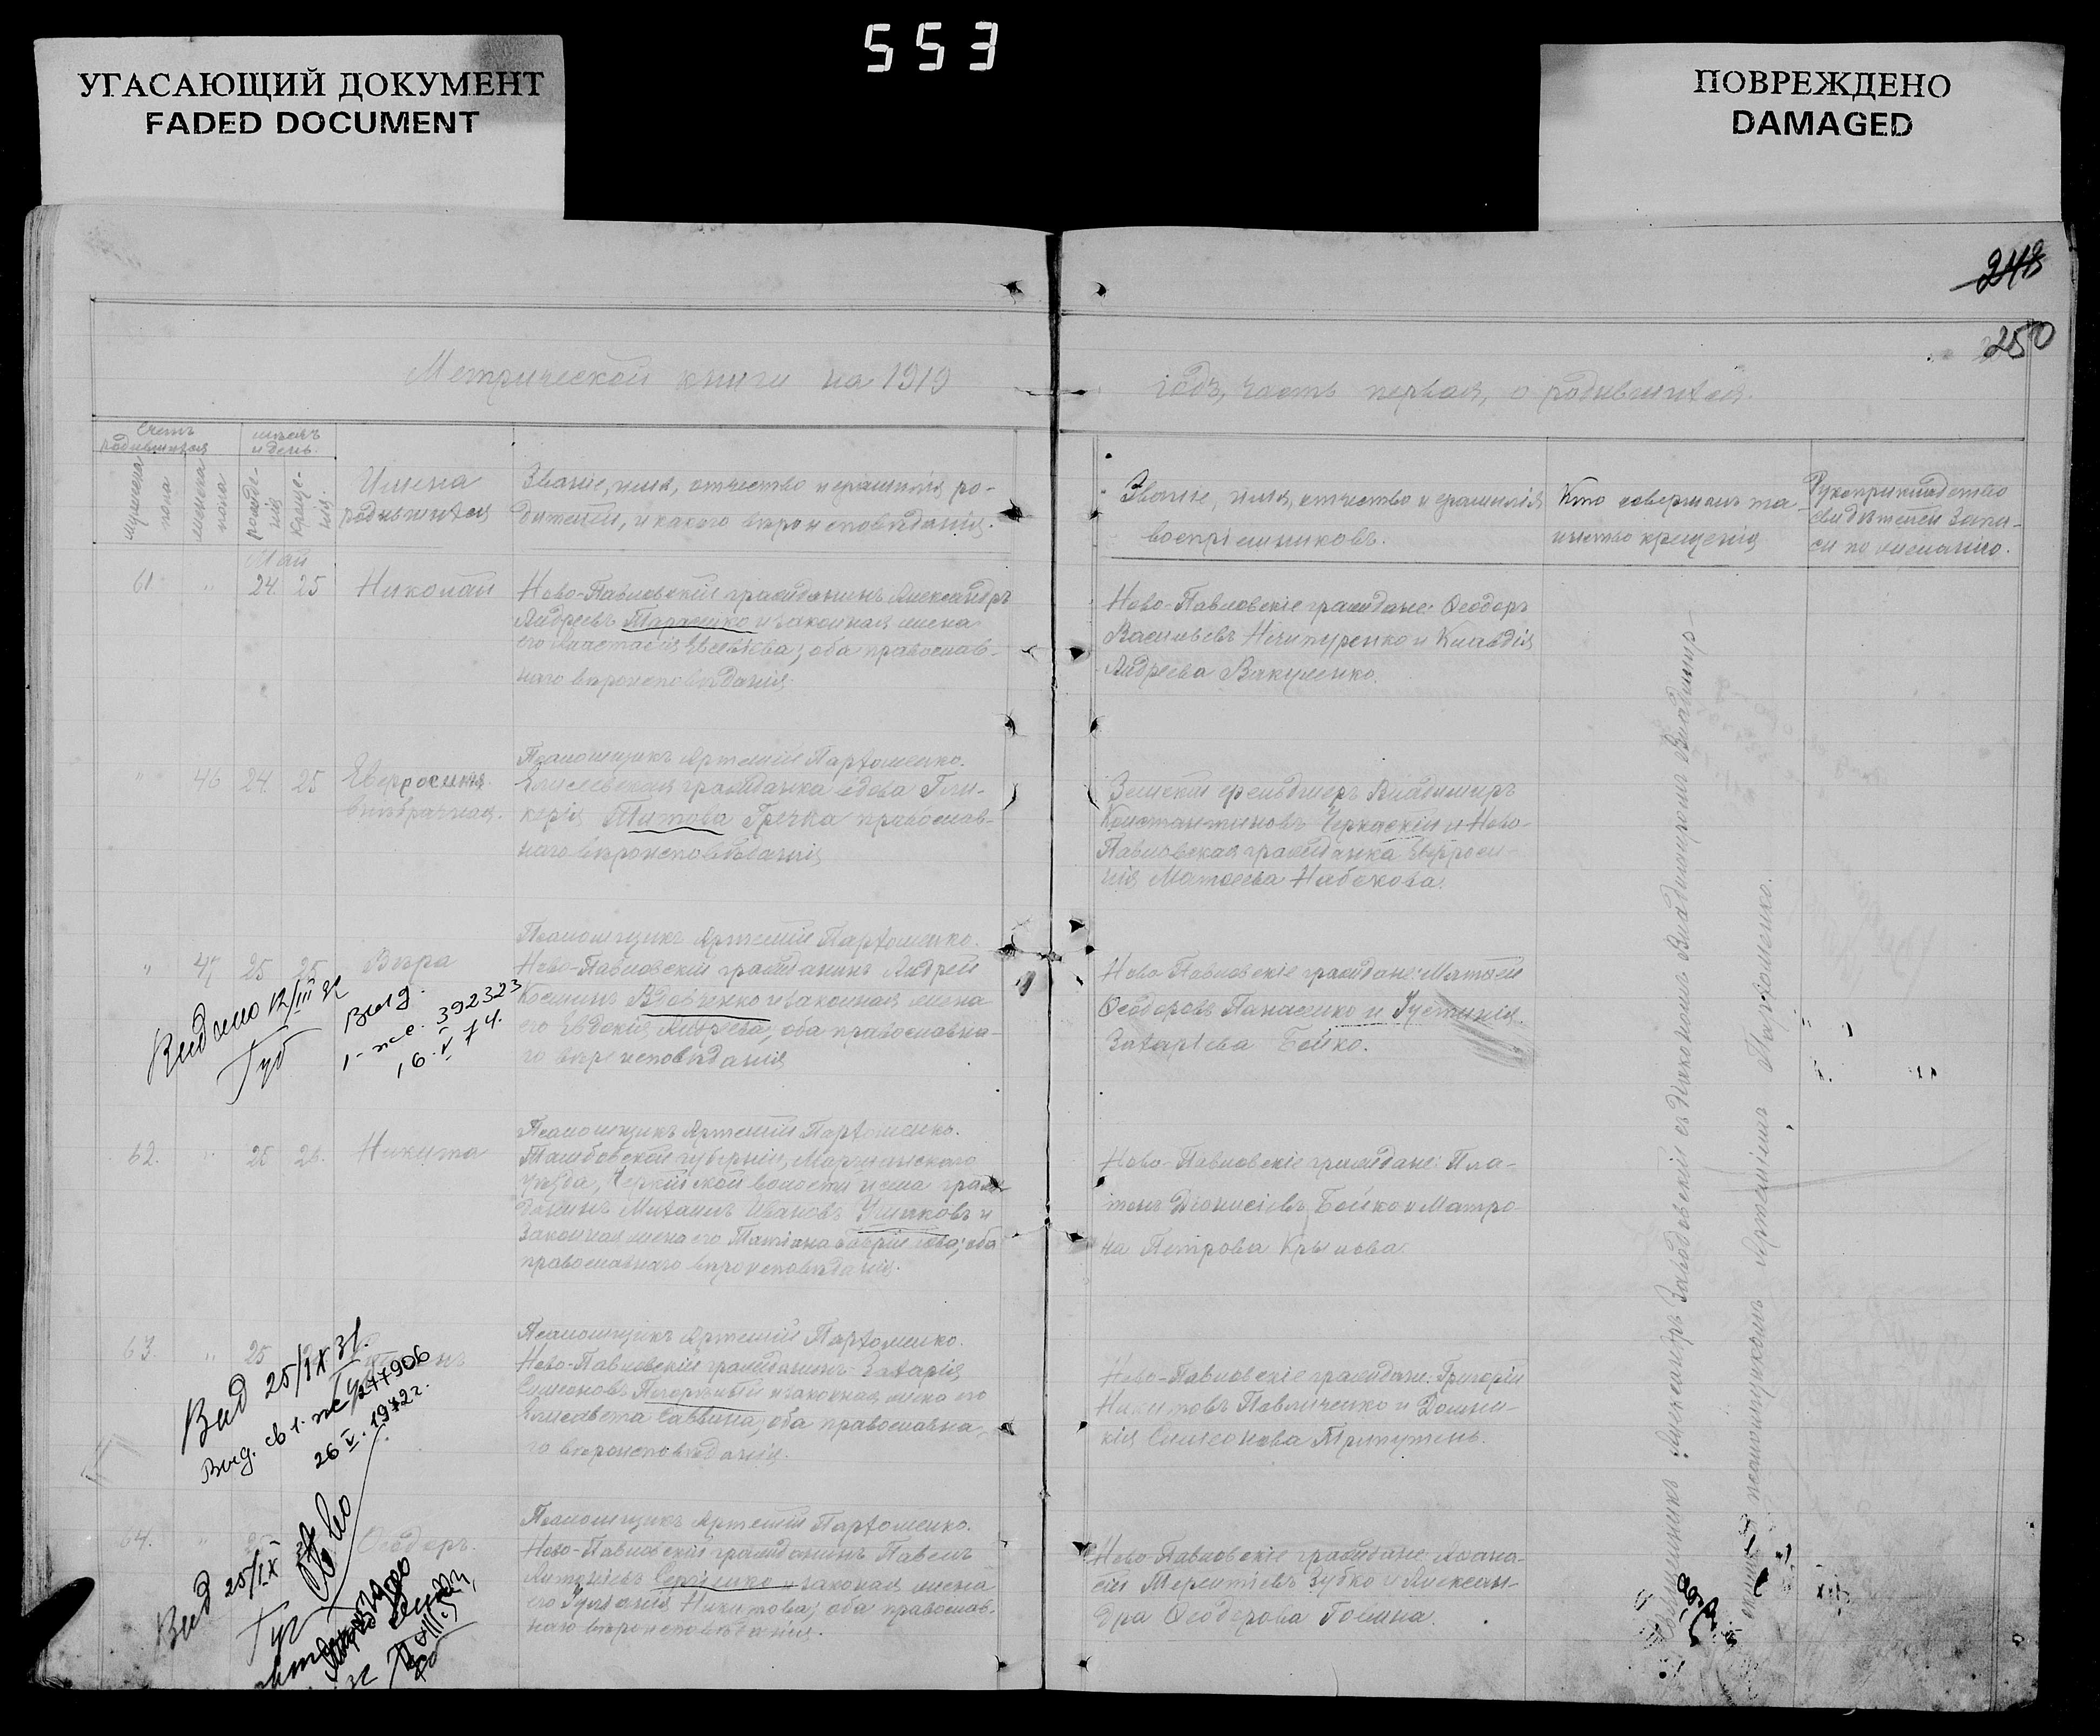 553
УГАСАЮЩИЙ ДОКУМЕНТ
FADED DOCUMENT
ПОВРЕЖДЕНО
DAMAGED
248
250
Метрической книги на 1919
годъ, часть первая, о родившихся.
Счетъ родившихся
мужеска пола
женска пола
мѣсяцъ и день.
рожде-
нія
креще-
нія.
Имена
родившихся
Званіе, имя, отчество и фамилія ро-
дителей, и какого вѣроисповѣданія.
Званіе, имя, отчество и фамилія
воспріемниковъ.
Кто совершалъ та-
инство крещенія
Рукоприкладство
свидѣтелей запи-
си по желанію.
Май
61 " 24. 25 Николай
Ново-Павловскій гражданинъ Александръ
Андреевъ Тарасенко и законная жена
его Анастасія Евсевіева; оба православ-
наго вѣроисповѣданія.
Ново-Павловскіе граждане: Ѳеодоръ
Васильевъ Нечипуренко и Клавдія
Андреева Вакуленко.
Псаломщикъ Артемій Пархоменко.
" 46 24. 25 Евфросинія
внѣбрачная.
гражданка вдова Гли-
керія Титова Гречка православ-
наго вѣроисповѣданія
Земскій фельдшеръ Владимиръ
Константиновъ Черкаскій и Ново-
Павловская гражданка Евфроси-
нія Матѳеева Набокова.
Псаломщикъ Артемій Пархоменко.
" 47 25 25 Вѣра
Ново-Павловскій гражданинъ Андрей
Косминъ Вдовченко и законная жена
его Евдокія Андреева; оба православна-
го вѣроисповѣданія
Ново-Павловскіе граждане: Матѳей
Ѳеодоровъ Панасенко и Іустинія
Захаріева Бойко.
Видано 12/III 32
Выд.
1-же. 392323
16.V 74.
Псаломщикъ Артемій Пархоменко.
62. " 25 26. Никита
Тамбовской губерніи, Моршанскаго
уѣзда, волости и села граж-
данинъ Михаилъ Ивановъ Ушаковъ и
законная жена его Татіана оба
православнаго вѣроисповѣданія.
Ново-Павловскіе граждане: Пла-
тонъ Діонисіевъ Бойко и Матро-
на Петрова Крылова.
Псаломщикъ Артемій Пархоменко.
63. " 25
Ново-Павловскій гражданинъ Захарія
Симеоновъ Погорѣлый и законная жена его
Елисавета Саввина; оба православна-
го вѣроисповѣданія.
Ново-Павловскіе граждане: Григорій
Никитовъ Павличенко и Домни-
кія Симеонова Трипутень.
Вид 25/IX 31.
Выд. св 1.
277906
26 V. 1972г.
Псаломщикъ Артемій Пархоменко.
64. " Ѳеодоръ.
Ново-Павловскій гражданинъ Павелъ
Антоніевъ Сергіенко и законная жена
его Іуліанія Никитова; оба православ-
наго вѣроисповѣданія.
Ново-Павловскіе граждане: Аѳана-
сій Терентіевъ Зубко и Алексан-
дра Ѳеодорова Говина.
Вид 25/IX
Священникъ Александръ Заводовскій съ діакономъ Владимиромъ Владимир-
скимъ и псаломщикомъ Артеміемъ Пархоменко.